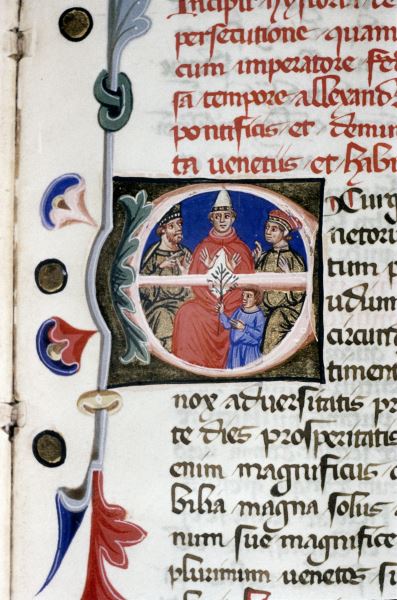 Incipit hystoria
persecutione quam
cum imperatore
sa tempore allexand
pontificis et demum
ta venetiis et
Curg
netoru
tum p
udum
circuit
timent
nox adversitatis pr
te dies prosperitatis
enim magnificus
bibia magna solus
num sue magnifice
plurimum venetos si